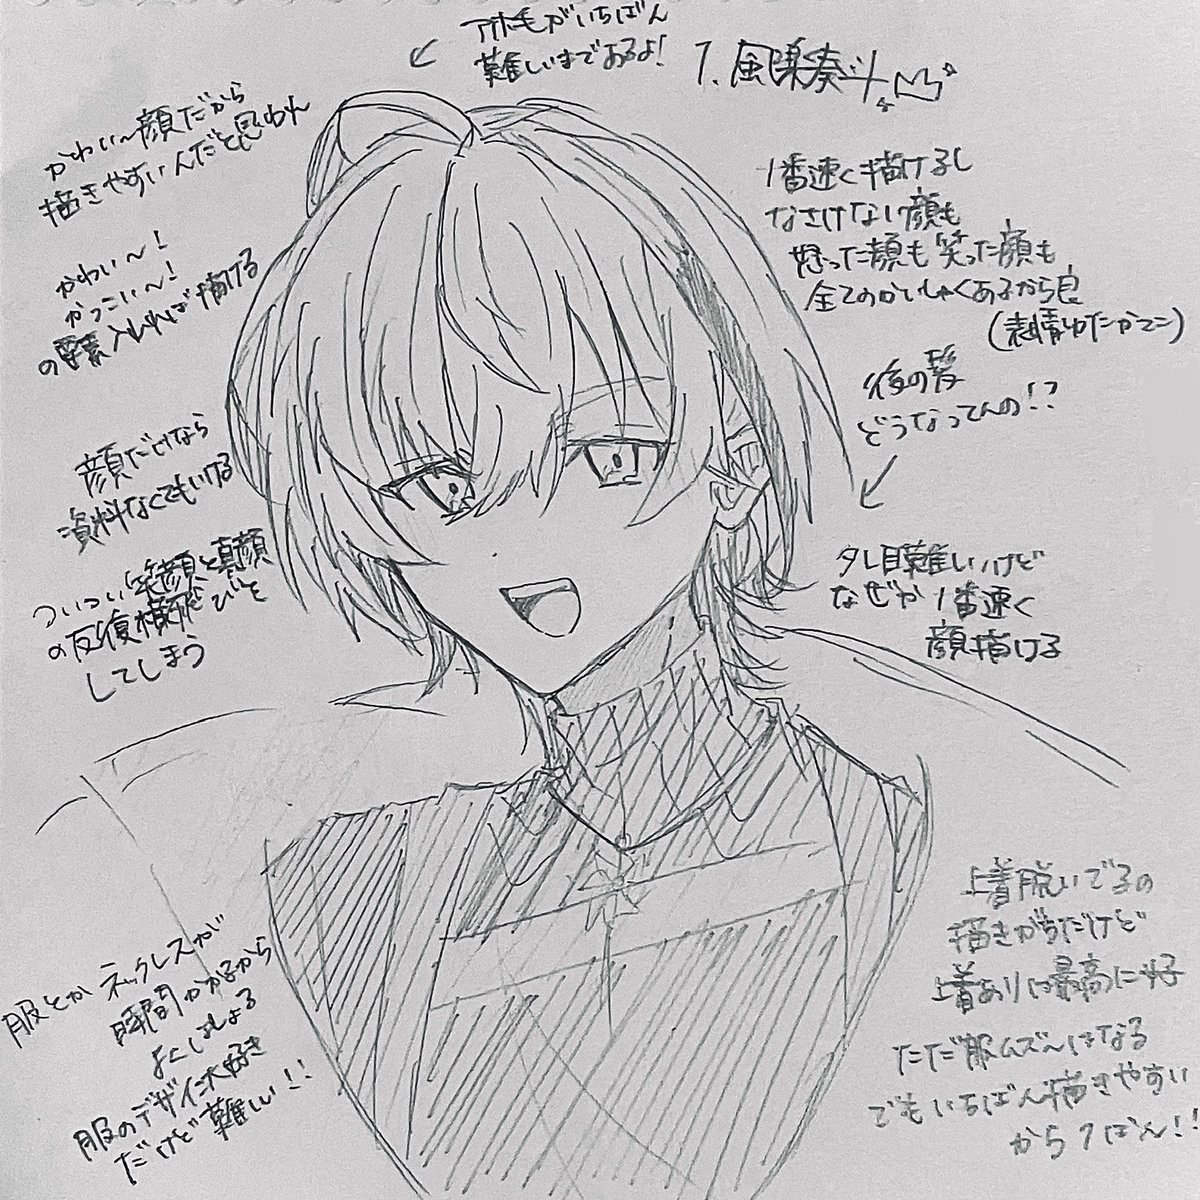 アホ毛がいちばん
難しいまであるよ!
1.風楽奏斗
かわい〜顔だから
描きやすいんだと思われ
かわい〜!
かっこい〜!
の要素入れれば描ける
顔だけなら
資料なくてもいける
ついつい笑顔と真顔
の反復横飛びを
してしまう
服とかネックレスが
時間かかるから
よくはしょる
服のデザイン大好き
だけど難しい!!
1番速く描けるし
なさけない顔も
怒った顔も笑った顔も
全てのかいしゃくあるから良
(表情ゆたかてこ)
後の髪
どうなってんの!?
タレ目難しいけど
なぜか1番速く
顔描ける
上着脱いでるの
描きがちだけど
上着ありは最高に好
ただ服ムズくなる
でもいちばん描きやすい
から1ばん!!